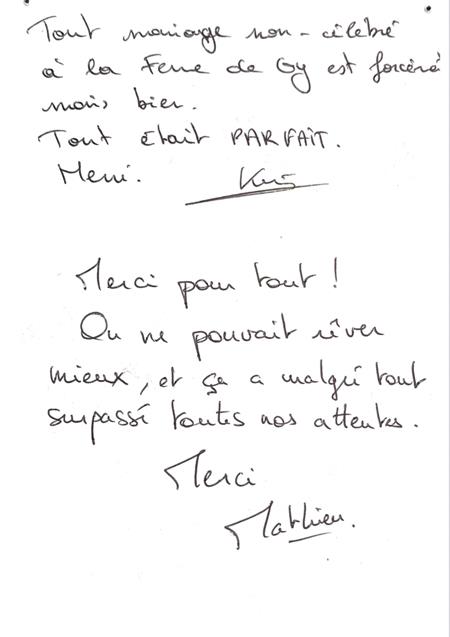 Tout mariage non-célébré
à la Ferme de Gy est forcémé
moins bien.
Tout était PARFAIT.
Merci.
Merci pour tout !
On ne pouvait rêver
mieux, et ça a malgré tout
surpassé toutes nos attentes.
Merci
Mathieu.